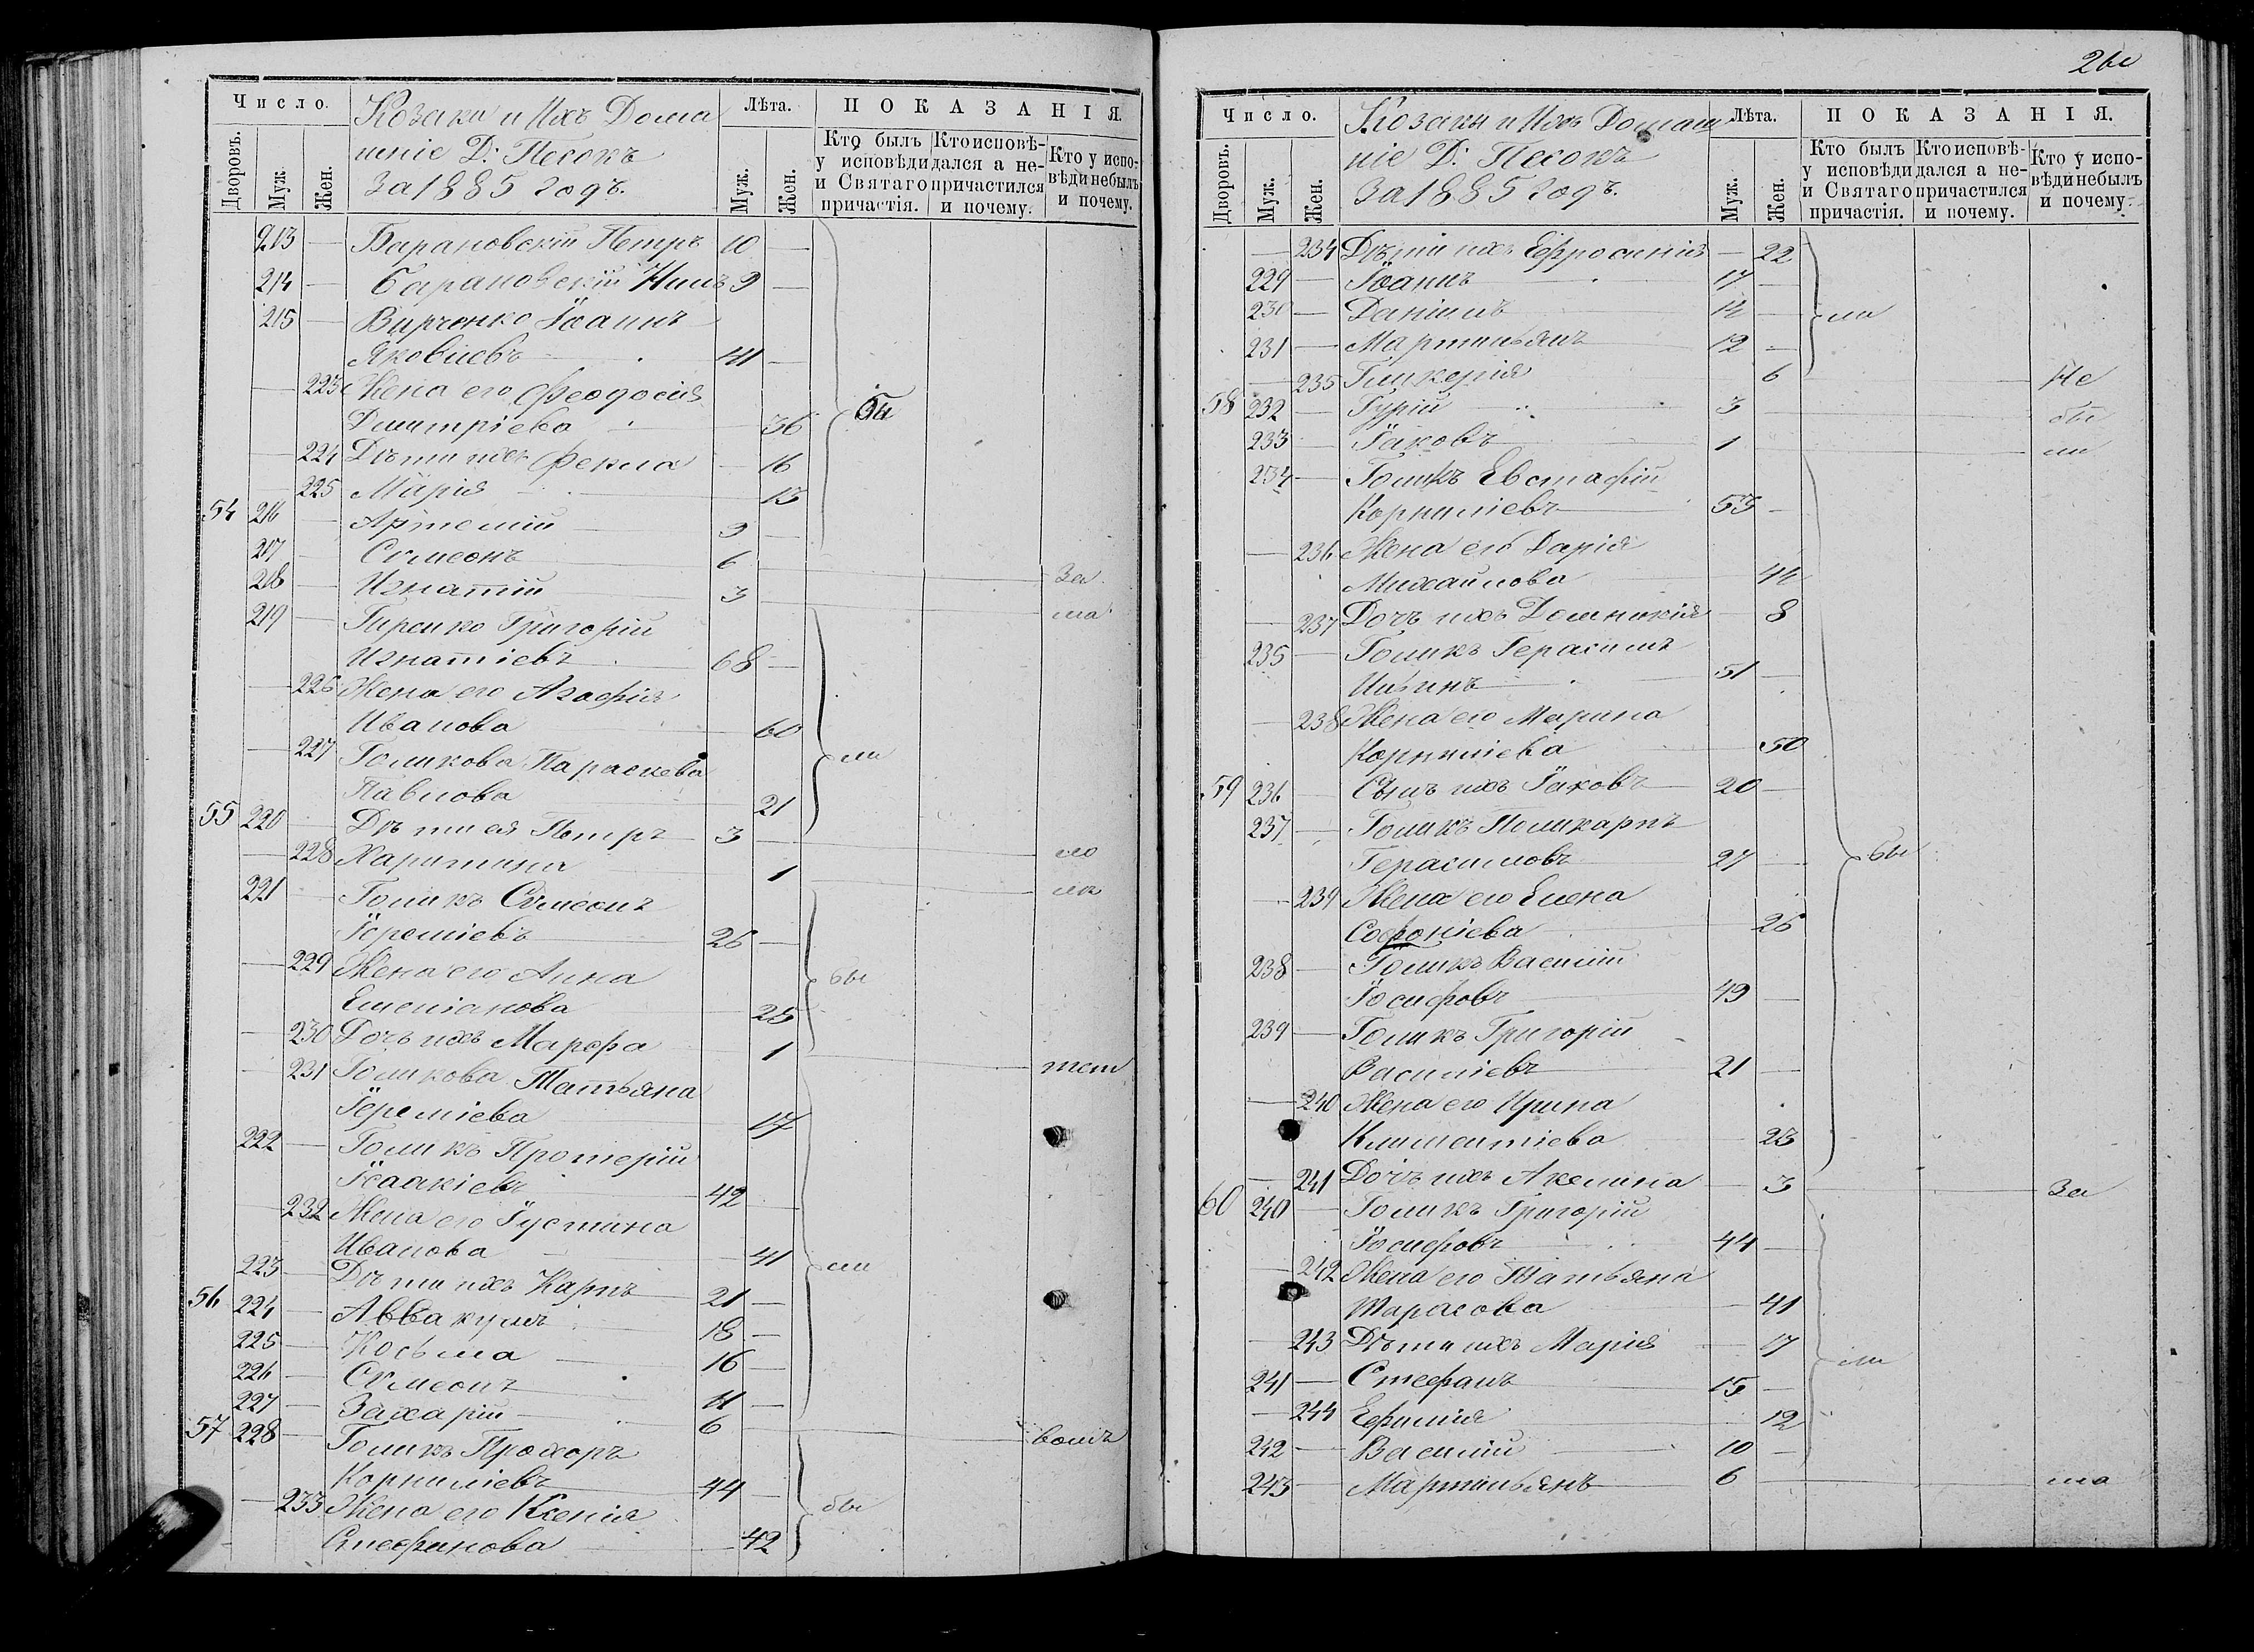 Число. Козаки и Ихъ Дома Лѣта. ПОКАЗАНІЯ.
шніе Д: Песокъ
За 1885 годъ.
Дворовъ. Муж. Жен. Муж. Жен. Кто былъ у исповѣди и Святаго причастія. Кто исповѣдался а не причастился и почему. Кто у исповѣди небылъ и почему.
213 — Барановскій Петръ 10 —
214 — Барановскій 9 —
215 — Вирченко Іоаннъ
Яковлевъ 41 —
— 223 Жена его Феодосія
Димитріева 36 бы
— 224 Дѣти ихъ Фекла — 16
— 225 Марія 13
54 216 — Артемій 9 —
217 — Сѵмеонъ 6 За
218 — Игнатій 3 ма
219 — Гиренко Григорій
Игнатіевъ 68 —
— 226 Жена его Агафія
Иванова 60
— 227 Голикова Параскева ли
Павлова 21
55 220 — Дѣти ея Петръ 3 ло
— 228 Харитина 1
221 — Голикъ Сѵмеонъ
Іереміевъ 26 —
— 229 Жена его Анна бы
Емеліанова 25
— 230 Дочь ихъ Марфа 1 тст
— 231 Голикова Татьяна
Іереміева 17
222 — Голикъ Протерій
Ісаакіевъ 42 —
— 232 Жена его Іустина
Иванова 41 ли
223 — Дѣти ихъ Карпъ 21 —
56 224 — Аввакумъ 18 —
225 — Косьма 16 —
226 — Сѵмеонъ 11 —
227 — Захарій 6 вомъ
57 228 — Голикъ Прохоръ
Корниліевъ 44 —
— 233 Жена его Ксенія бы
Стефанова 42
Число. Козаки и Ихъ Домаш Лѣта. ПОКАЗАНІЯ.
ніе Д: Песокъ
За 1885 годъ.
Дворовъ. Муж. Жен. Муж. Жен. Кто былъ у исповѣди и Святаго причастія. Кто исповѣдался а не причастился и почему. Кто у исповѣди небылъ и почему.
— 234 Дѣти ихъ Ефросинія — 22
229 — Іоаннъ 17 —
230 — Даніилъ 14 — ли
231 — Мартиньянъ 12 —
— 235 Гликерія 6 Не
58 232 — Гурій 3 бы
233 — Іаковъ 1 ли
234 — Голикъ Евстафій
Корниліевъ 53 —
— 236 Жена его Дарія
Михайлова 44
— 237 Дочь ихъ Домникія — 8
235 — Голикъ Герасимъ
Ильинъ 51 —
— 238 Жена его Марина
Корниліева 50
59 236 — Сынъ ихъ Іаковъ 20 —
237 — Голикъ Поликарпъ
Герасимовъ 27 — бы
— 239 Жена его Елена
Софоніева 25
238 — Голикъ Василій
Іосифовъ 49 —
239 — Голикъ Григорій
Василіевъ 21 —
— 240 Жена его Ирина
Климентіева — 23
— 241 Дочь ихъ Акелина — 3 За
60 240 — Голикъ Григорій
Іосифовъ 44 —
— 242 Жена его Татьяна
Тарасова — 41
— 243 Дѣти ихъ Марія — 17 ли
241 — Стефанъ 15 —
— 244 Ефимія 12
242 — Василій 10 —
243 — Мартиньянъ 6 ма